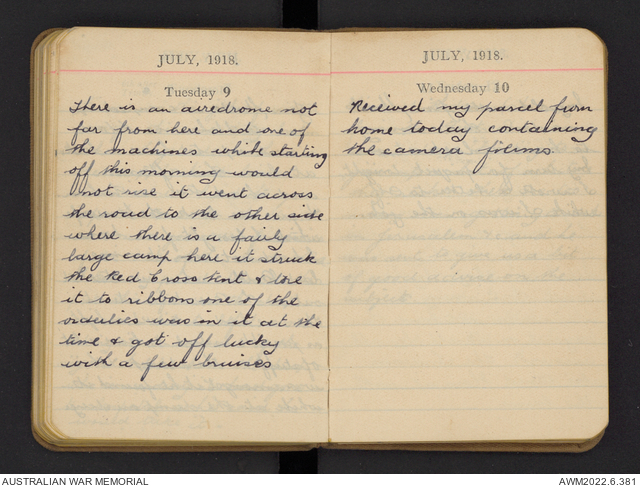 JULY, 1918.
Tuesday 9
There is an airedrome not
far from here and one of
the machines while starting
off this morning would
not rise it went across
the road to the other side
where there is a fairly
large camp here it struck
the Red Cross tent & tore
it to ribbons one of the
orderlies was in it at the
time & got off lucky
with a few bruises
JULY, 1918.
Wednesday 10
Received my parcel from
home today containing
the camera films.
AUSTRALIAN WAR MEMORIAL
AWM2022.6.381